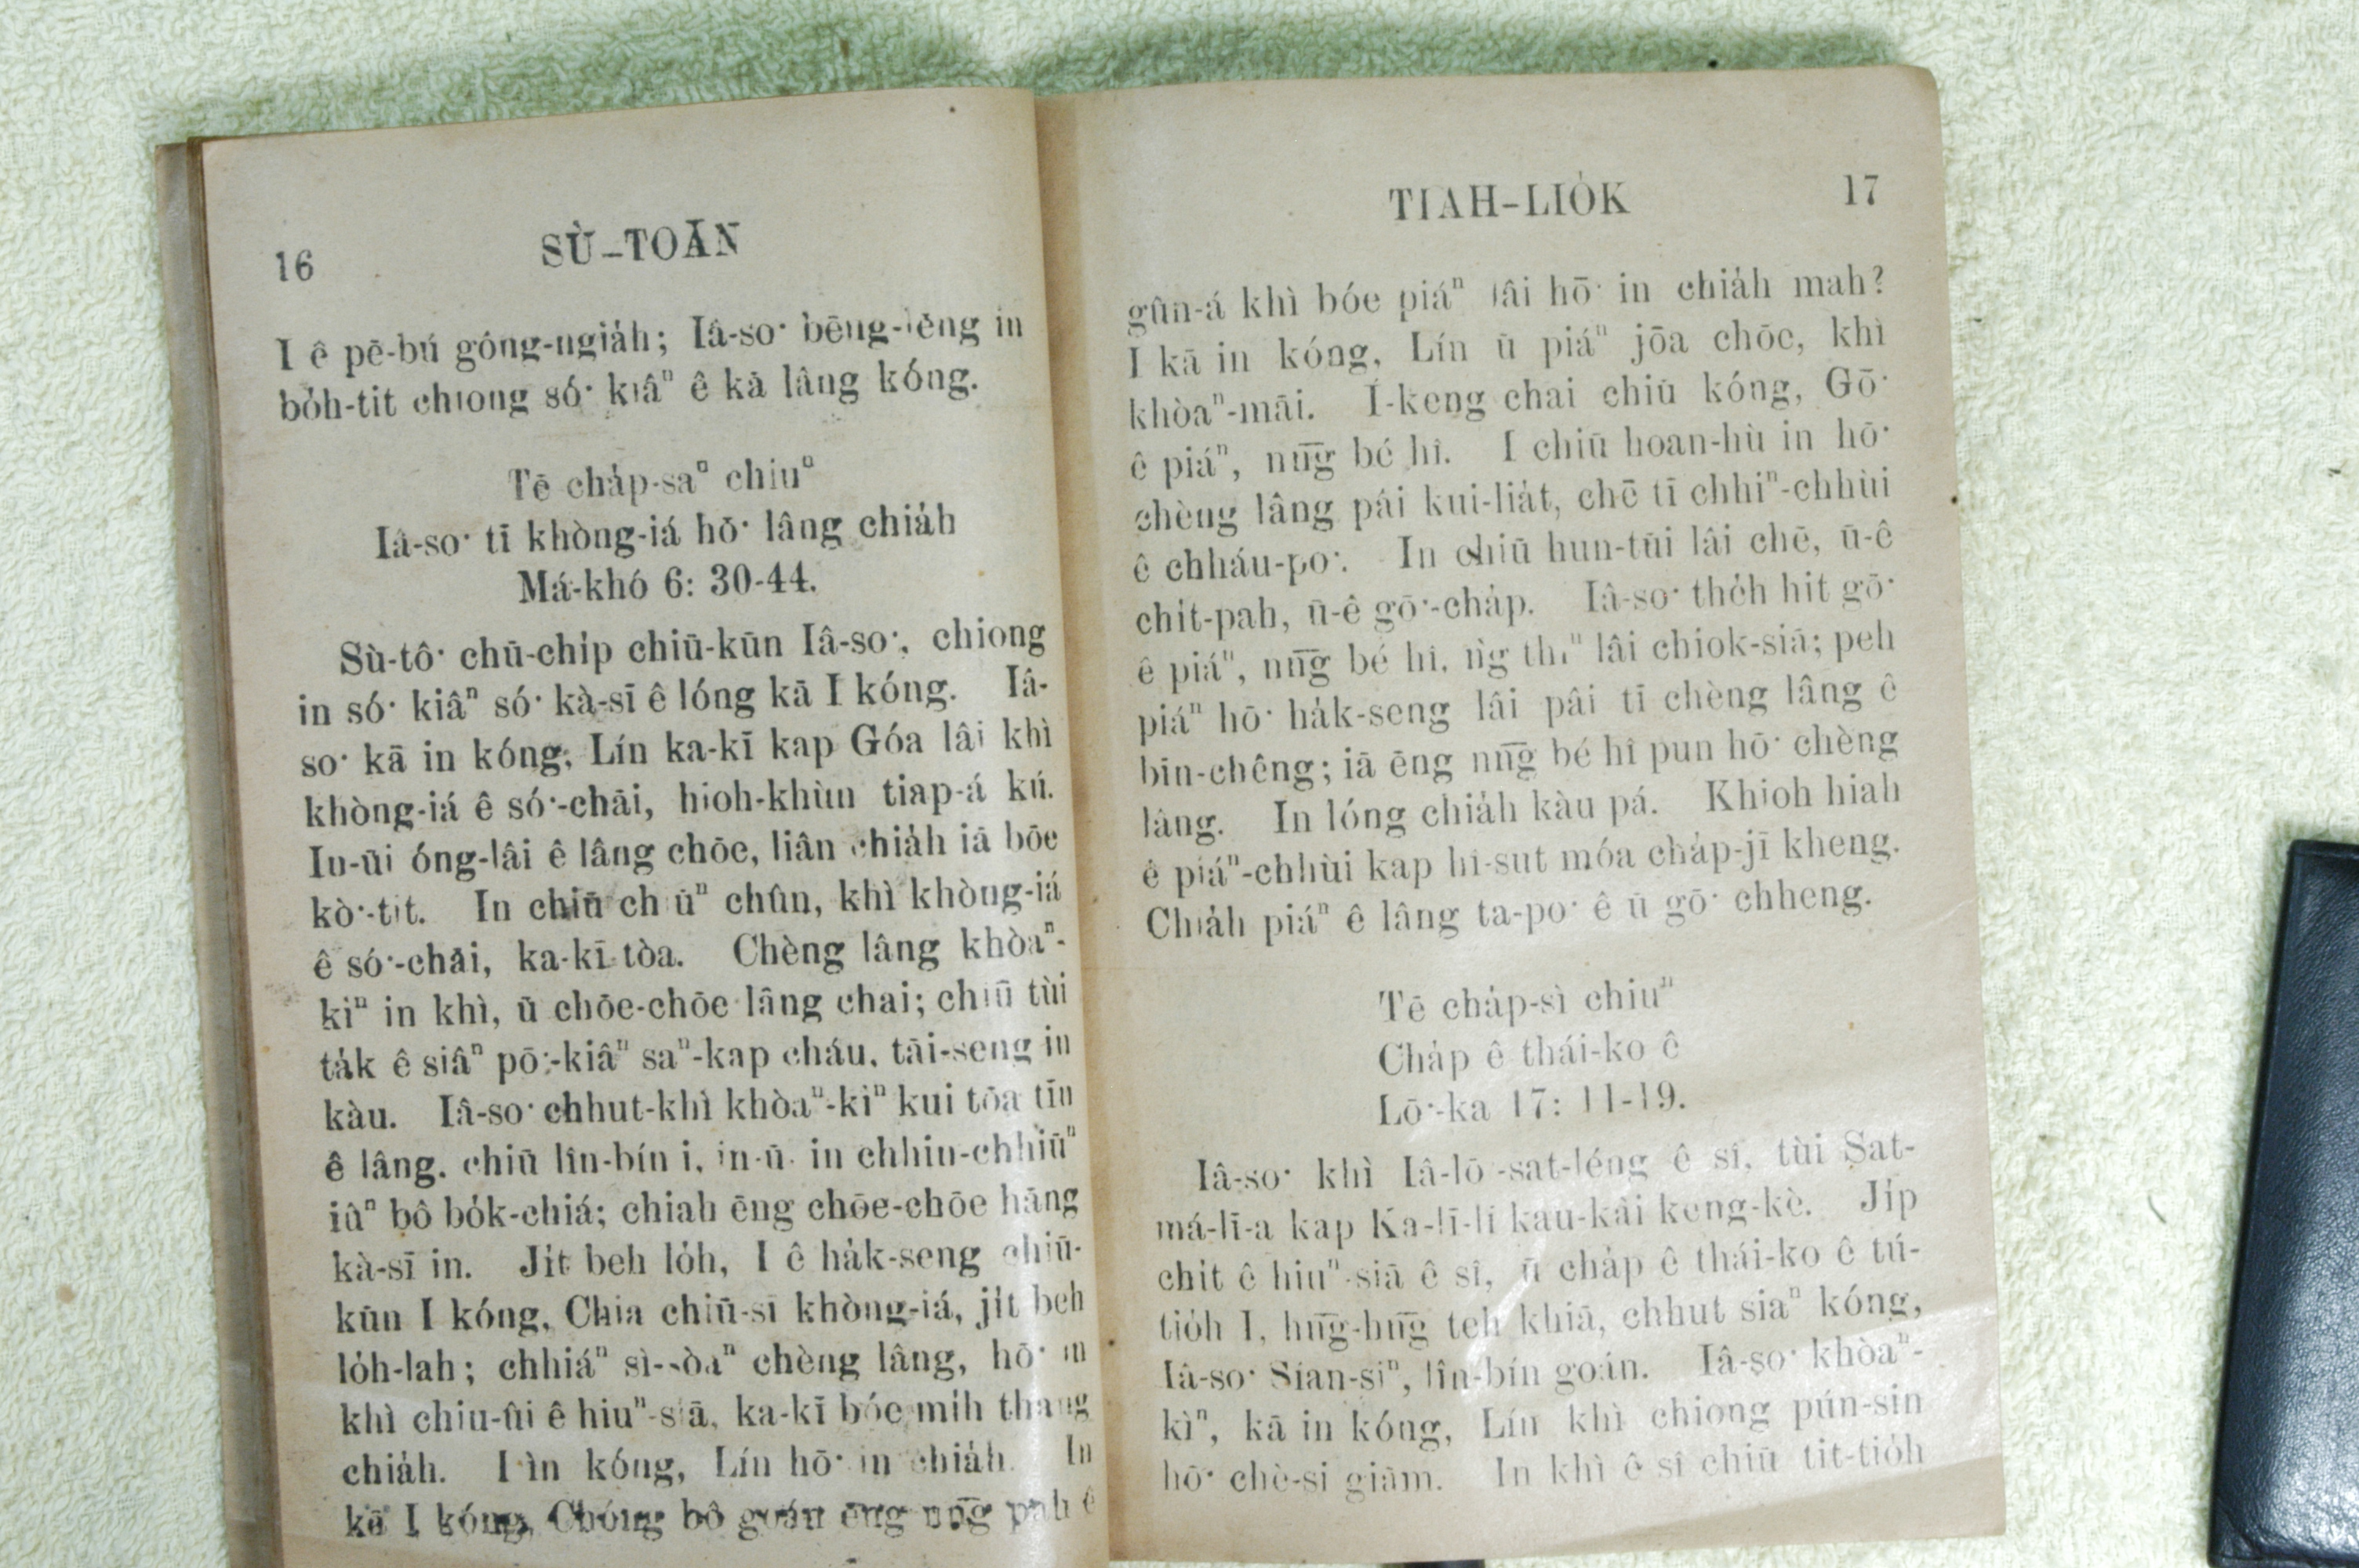 16
SÙ-TOĀN
I ê pē-bú góng-ngia̍h; Iâ-so͘ bēng-lēng in
bo̍h-tit chiong só͘ kiâⁿ ê kā lâng kóng.
Tē cha̍p-saⁿ chiuⁿ
Iâ-so͘ tī khòng-iá hō͘ lâng chia̍h
Má-khó 6: 30-44.
Sù-tô͘ chū-chi̍p chiū-kūn Iâ-so͘, chiong
in só͘ kiâⁿ só͘ kà-sī ê lóng kā I kóng. Iâ-
so͘ kā in kóng, Lín ka-kī kap Góa lâi khì
khòng-iá ê só͘-chāi, hioh-khùn tiap-á kú.
In-ūi óng-lâi ê lâng chōe, liân chia̍h iā bōe
kò͘-tit. In chiū chiūⁿ chûn, khì khòng-iá
ê só͘-chāi, ka-kī tòa. Chèng lâng khòaⁿ-
kiⁿ in khì, ū chōe-chōe lâng chai; chiū tùi
ta̍k ê siâⁿ pō͘-kiâⁿ saⁿ-kap cháu, tāi-seng in
kàu. Iâ-so͘ chhut-khì khòaⁿ-kiⁿ kui tōa tīn
ê lâng, chiū lîn-bín i, in-ūi in chhin-chhiūⁿ
iûⁿ bô bo̍k-chiá; chiah ēng chōe-chōe hāng
kà-sī in. Ji̍t beh lo̍h, I ê ha̍k-seng chiū-
kūn I kóng, Chia chiū-sī khòng-iá, ji̍t beh
lo̍h-lah; chhiáⁿ sì-sòaⁿ chèng lâng, hō͘ in
khì chiu-ûi ê hiuⁿ-siā, ka-kī bóe mi̍h thang
chia̍h. I ìn kóng, Lín hō͘ in chia̍h. In
kā I kóng, Chóng bô goán ēng nn̄g pah ê
TIAH-LIO̍K
17
gûn-á khì bóe piáⁿ lâi hō͘ in chia̍h mah?
I kā in kóng, Lín ū piáⁿ jōa chōe, khì
khòaⁿ-māi. Í-keng chai chiū kóng, Gō͘
ê piáⁿ, nn̄g bé hî. I chiū hoan-hù in hō͘
chèng lâng pâi kui-lia̍t, chē tī chhiⁿ-chhùi
ê chháu-po͘. In chiū hun-tūi lâi chē, ū-ê
chi̍t-pah, ū-ê gō͘-cha̍p. Iâ-so͘ the̍h hit gō͘
ê piáⁿ, nn̄g bé hî, ǹg thiⁿ lâi chiok-siā; peh
piáⁿ hō͘ ha̍k-seng lâi pâi tī chèng lâng ê
bīn-chêng; iā ēng nn̄g bé hî pun hō͘ chèng
lâng. In lóng chia̍h kàu pá. Khioh hiah
ê piáⁿ-chhùi kap hî-sut móa cha̍p-jī kheng.
Chia̍h piáⁿ ê lâng ta-po͘ ê ū gō͘ chheng.
Tē cha̍p-sì chiuⁿ
Cha̍p ê thái-ko ê
Lō͘-ka 17: 11-19.
Iâ-so͘ khì Iâ-lō͘-sat-léng ê sî, tùi Sat-
má-lī-a kap Ka-lī-lī kau-kài keng-kè. Ji̍p
chi̍t ê hiuⁿ-siā ê sî, ū cha̍p ê thái-ko ê tú-
tio̍h I, hn̄g-hn̄g teh khiā, chhut siaⁿ kóng,
Iâ-so͘ Sian-siⁿ, lîn-bín goán. Iâ-so͘ khòaⁿ-
kìⁿ, kā in kóng, Lín khì chiong pún-sin
hō͘ chè-si giām. In khì ê sî chiū tit-tio̍h